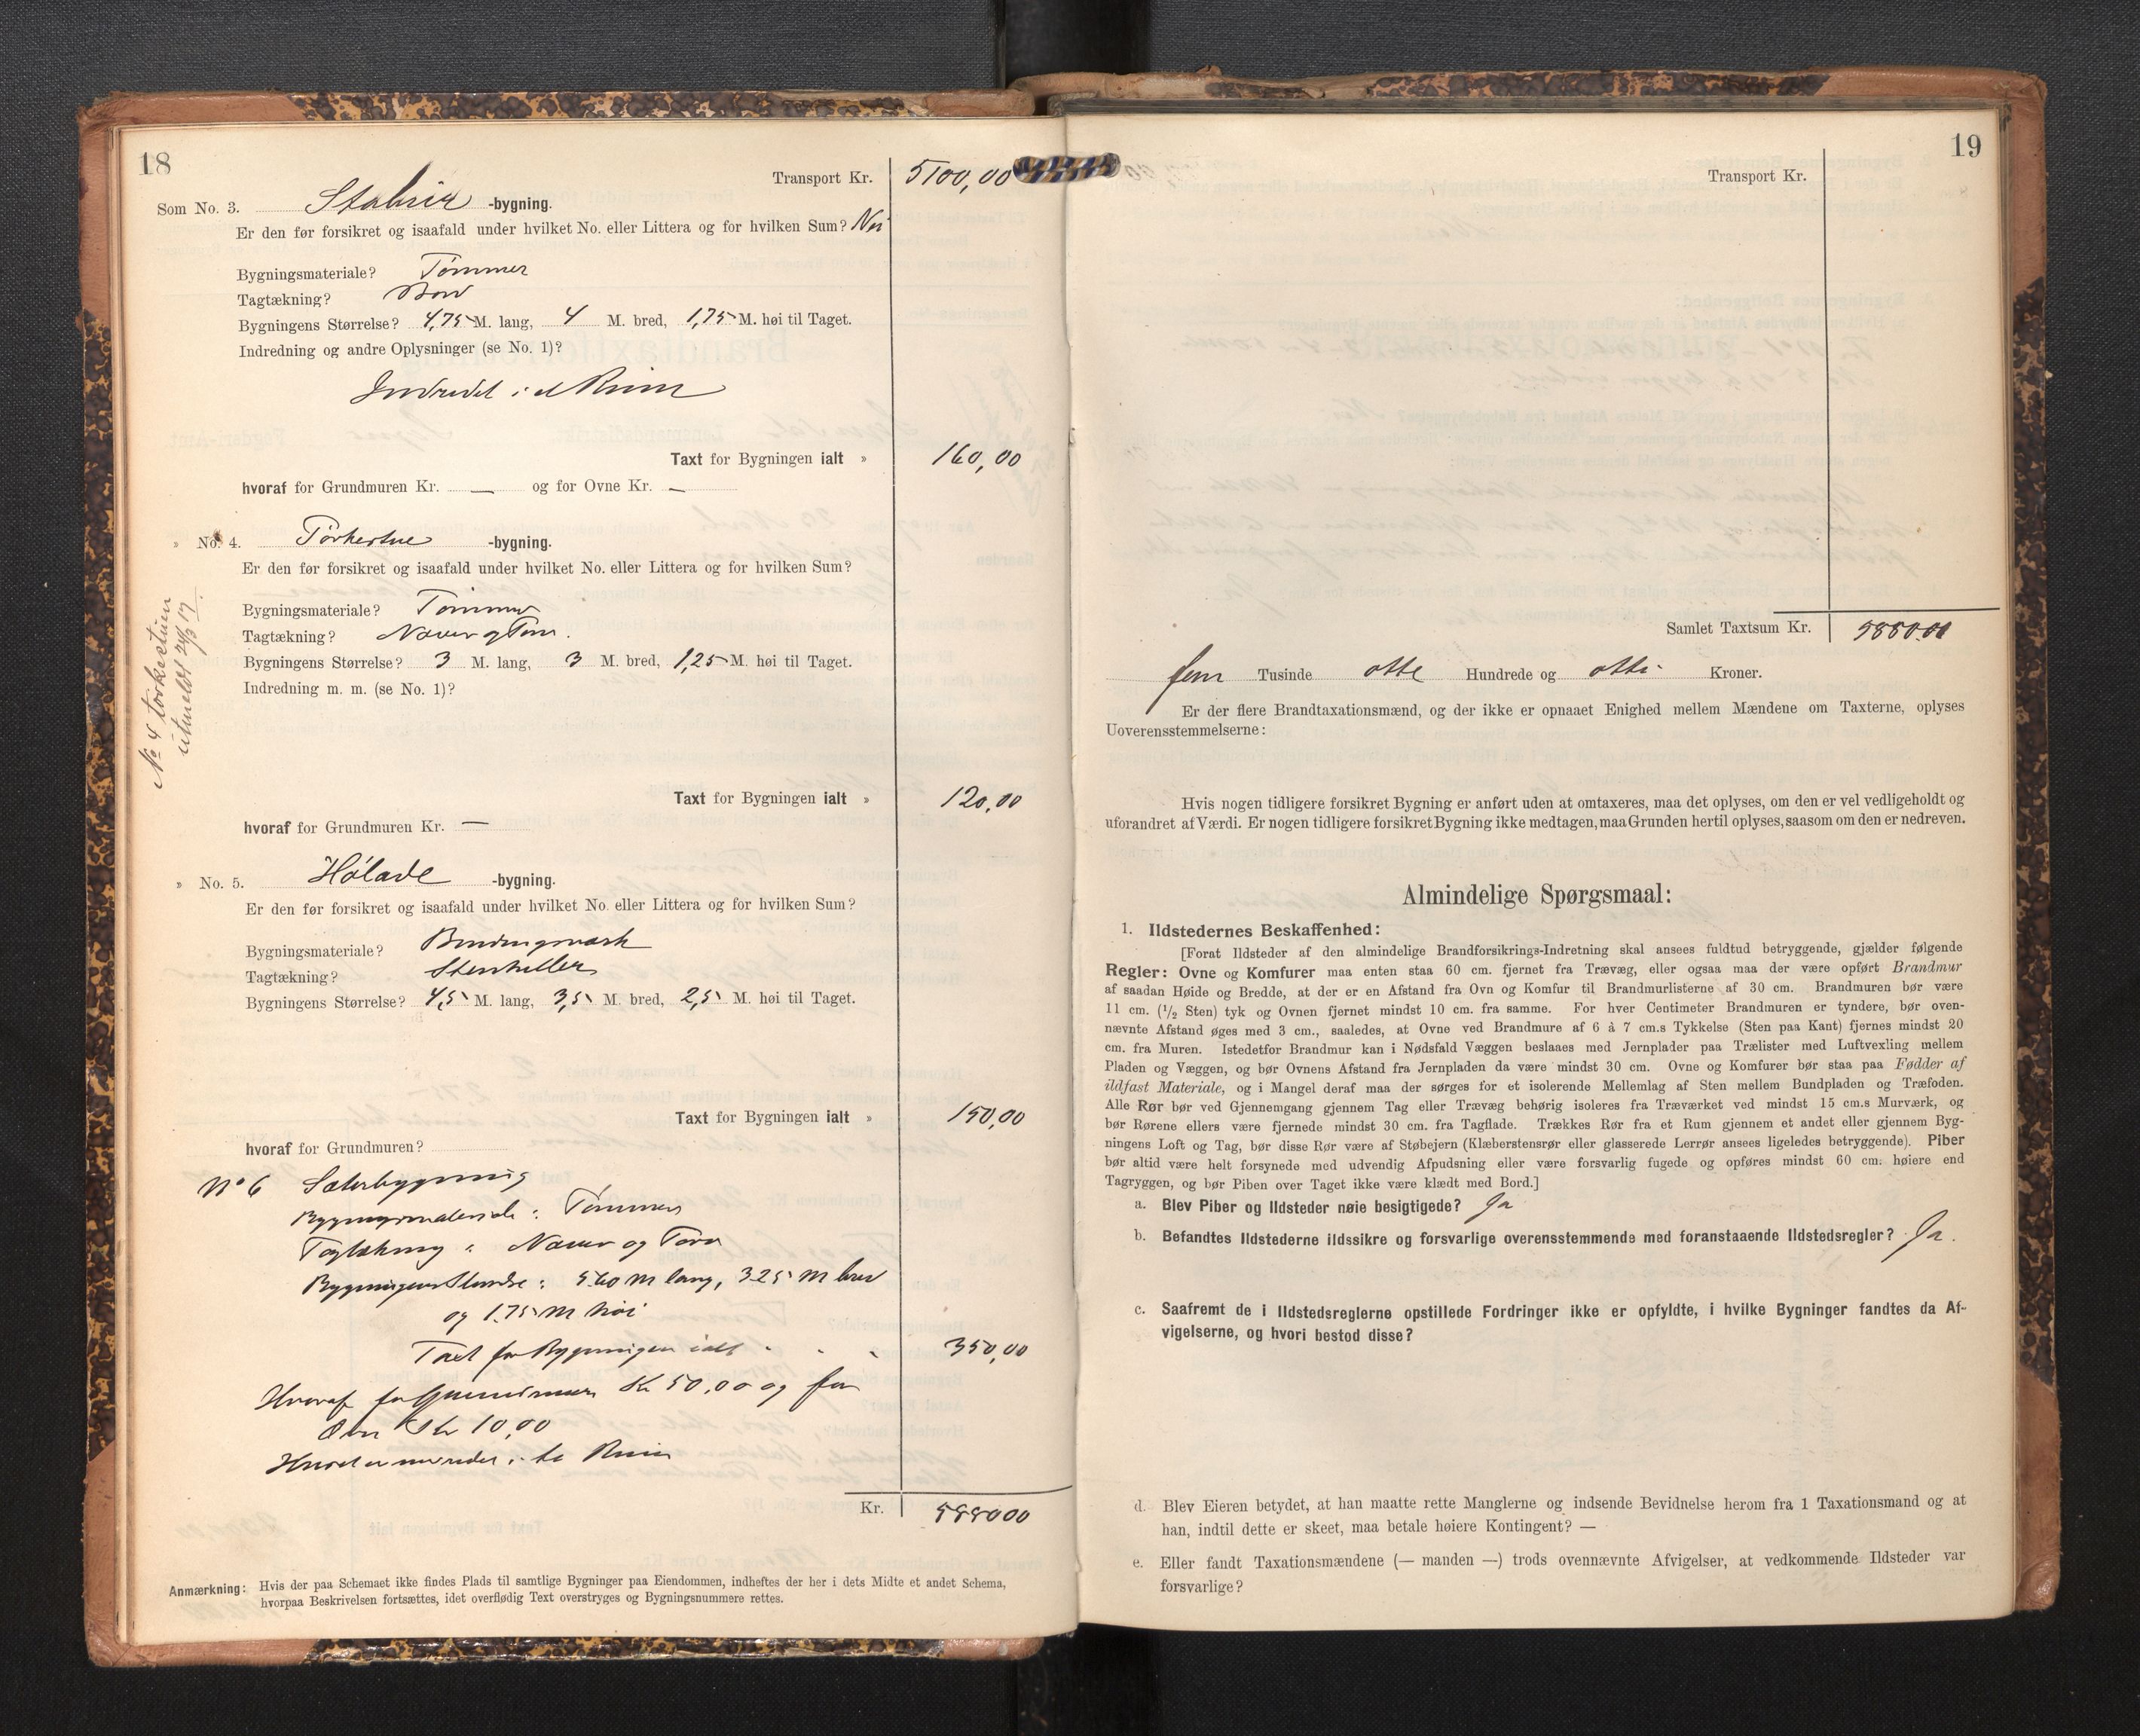 18
Transport Kr. 5100,00
Som No. 3. Stabur -bygning.
Er den før forsikret og isaafald under hvilket No. eller Littera og for hvilken Sum? Nei
Bygningsmateriale? Tømmer
Tagtækning? Bord
Bygningens Størrelse? 4,75 M. lang, 4 M. bred, 1,75 M. høi til Taget.
Indredning og andre Oplysninger (se No. 1)?
Indredet i et Rum
Taxt for Bygningen ialt » 160,00
hvoraf for Grundmuren Kr. — og for Ovne Kr. —
» No. 4. Tørkestue -bygning.
Er den før forsikret og isaafald under hvilket No. eller Littera og for hvilken Sum?
Bygningsmateriale? Tømmer
Tagtækning? Næver og Torv.
Bygningens Størrelse? 3 M. lang, 3 M. bred, 1,25 M. høi til Taget.
Indredning m. m. (se No. 1)?
No 4 tørkestuen
utmeldt 24/3 17.
Taxt for Bygningen ialt » 120,00
hvoraf for Grundmuren Kr. —
» No. 5. Hølade -bygning.
Er den før forsikret og isaafald under hvilket No. eller Littera og for hvilken Sum?
Bygningsmateriale? Bindingsværk
Tagtækning? Stenheller
Bygningens Størrelse? 4,5 M. lang, 3,5 M. bred, 2,5 M. høi til Taget.
Taxt for Bygningen ialt » 150,00
hvoraf for Grundmuren?
No 6 Sæterbygning
Bygningsmateriale: Tømmer
Tagtækning: Næver og Torv
Bygningens Størrelse: 5.60 M lang, 3.25 M bred
og 1.75 M høi
Taxt for Bygningen ialt 350,00
Hvoraf for Grundmuren Kr 50,00 og for
Ovn Kr 10,00
Huset er indredet i to Rum
Kr. 588000
Anmærkning: Hvis der paa Schemaet ikke findes Plads til samtlige Bygninger paa Eiendommen, indheftes der her i dets Midte et andet Schema,
hvorpaa Beskrivelsen fortsættes, idet overflødig Text overstryges og Bygningsnummere rettes.
19
Transport Kr.
Samlet Taxtsum Kr. 588000
fem Tusinde otte Hundrede og otti Kroner.
Er der flere Brandtaxationsmænd, og der ikke er opnaaet Enighed mellem Mændene om Taxterne, oplyses
Uoverensstemmelserne:
Hvis nogen tidligere forsikret Bygning er anført uden at omtaxeres, maa det oplyses, om den er vel vedligeholdt og
uforandret af Værdi. Er nogen tidligere forsikret Bygning ikke medtagen, maa Grunden hertil oplyses, saasom om den er nedreven.
Almindelige Spørgsmaal:
1. Ildstedernes Beskaffenhed:
[Forat Ildsteder af den almindelige Brandforsikrings-Indretning skal ansees fuldtud betryggende, gjælder følgende
Regler: Ovne og Komfurer maa enten staa 60 cm. fjernet fra Trævæg, eller ogsaa maa der være opført Brandmur
af saadan Høide og Bredde, at der er en Afstand fra Ovn og Komfur til Brandmurlisterne af 30 cm. Brandmuren bør være
11 cm. (1/2 Sten) tyk og Ovnen fjernet mindst 10 cm. fra samme. For hver Centimeter Brandmuren er tyndere, bør oven-
nævnte Afstand øges med 3 cm., saaledes, at Ovne ved Brandmure af 6 à 7 cm.s Tykkelse (Sten paa Kant) fjernes mindst 20
cm. fra Muren. Istedetfor Brandmur kan i Nødsfald Væggen beslaaes med Jernplader paa Trælister med Luftvexling mellem
Pladen og Væggen, og bør Ovnens Afstand fra Jernpladen da være mindst 30 cm. Ovne og Komfurer bør staa paa Fødder af
ildfast Materiale, og i Mangel deraf maa der sørges for et isolerende Mellemlag af Sten mellem Bundpladen og Træfoden.
Alle Rør bør ved Gjennemgang gjennem Tag eller Trævæg behørig isoleres fra Træværket ved mindst 15 cm.s Murværk, og
bør Rørene ellers være fjernede mindst 30 cm. fra Tagflade. Trækkes Rør fra et Rum gjennem et andet eller gjennem Byg-
ningens Loft og Tag, bør disse Rør være af Støbejern (Klæberstensrør eller glasserede Lerrør ansees ligeledes betryggende). Piber
bør altid være helt forsynede med udvendig Afpudsning eller være forsvarlig fugede og opføres mindst 60 cm. høiere end
Tagryggen, og bør Piben over Taget ikke være klædt med Bord.]
a. Blev Piber og Ildsteder nøie besigtigede? Ja
b. Befandtes Ildstederne ildssikre og forsvarlige overensstemmende med foranstaaende Ildstedsregler? Ja.
c. Saafremt de i Ildstedsreglerne opstillede Fordringer ikke er opfyldte, i hvilke Bygninger fandtes da Af-
vigelserne, og hvori bestod disse?
d. Blev Eieren betydet, at han maatte rette Manglerne og indsende Bevidnelse herom fra 1 Taxationsmand og at
han, indtil dette er skeet, maa betale høiere Kontingent? —
e. Eller fandt Taxationsmændene (— manden —) trods ovennævnte Afvigelser, at vedkommende Ildsteder var
forsvarlige?